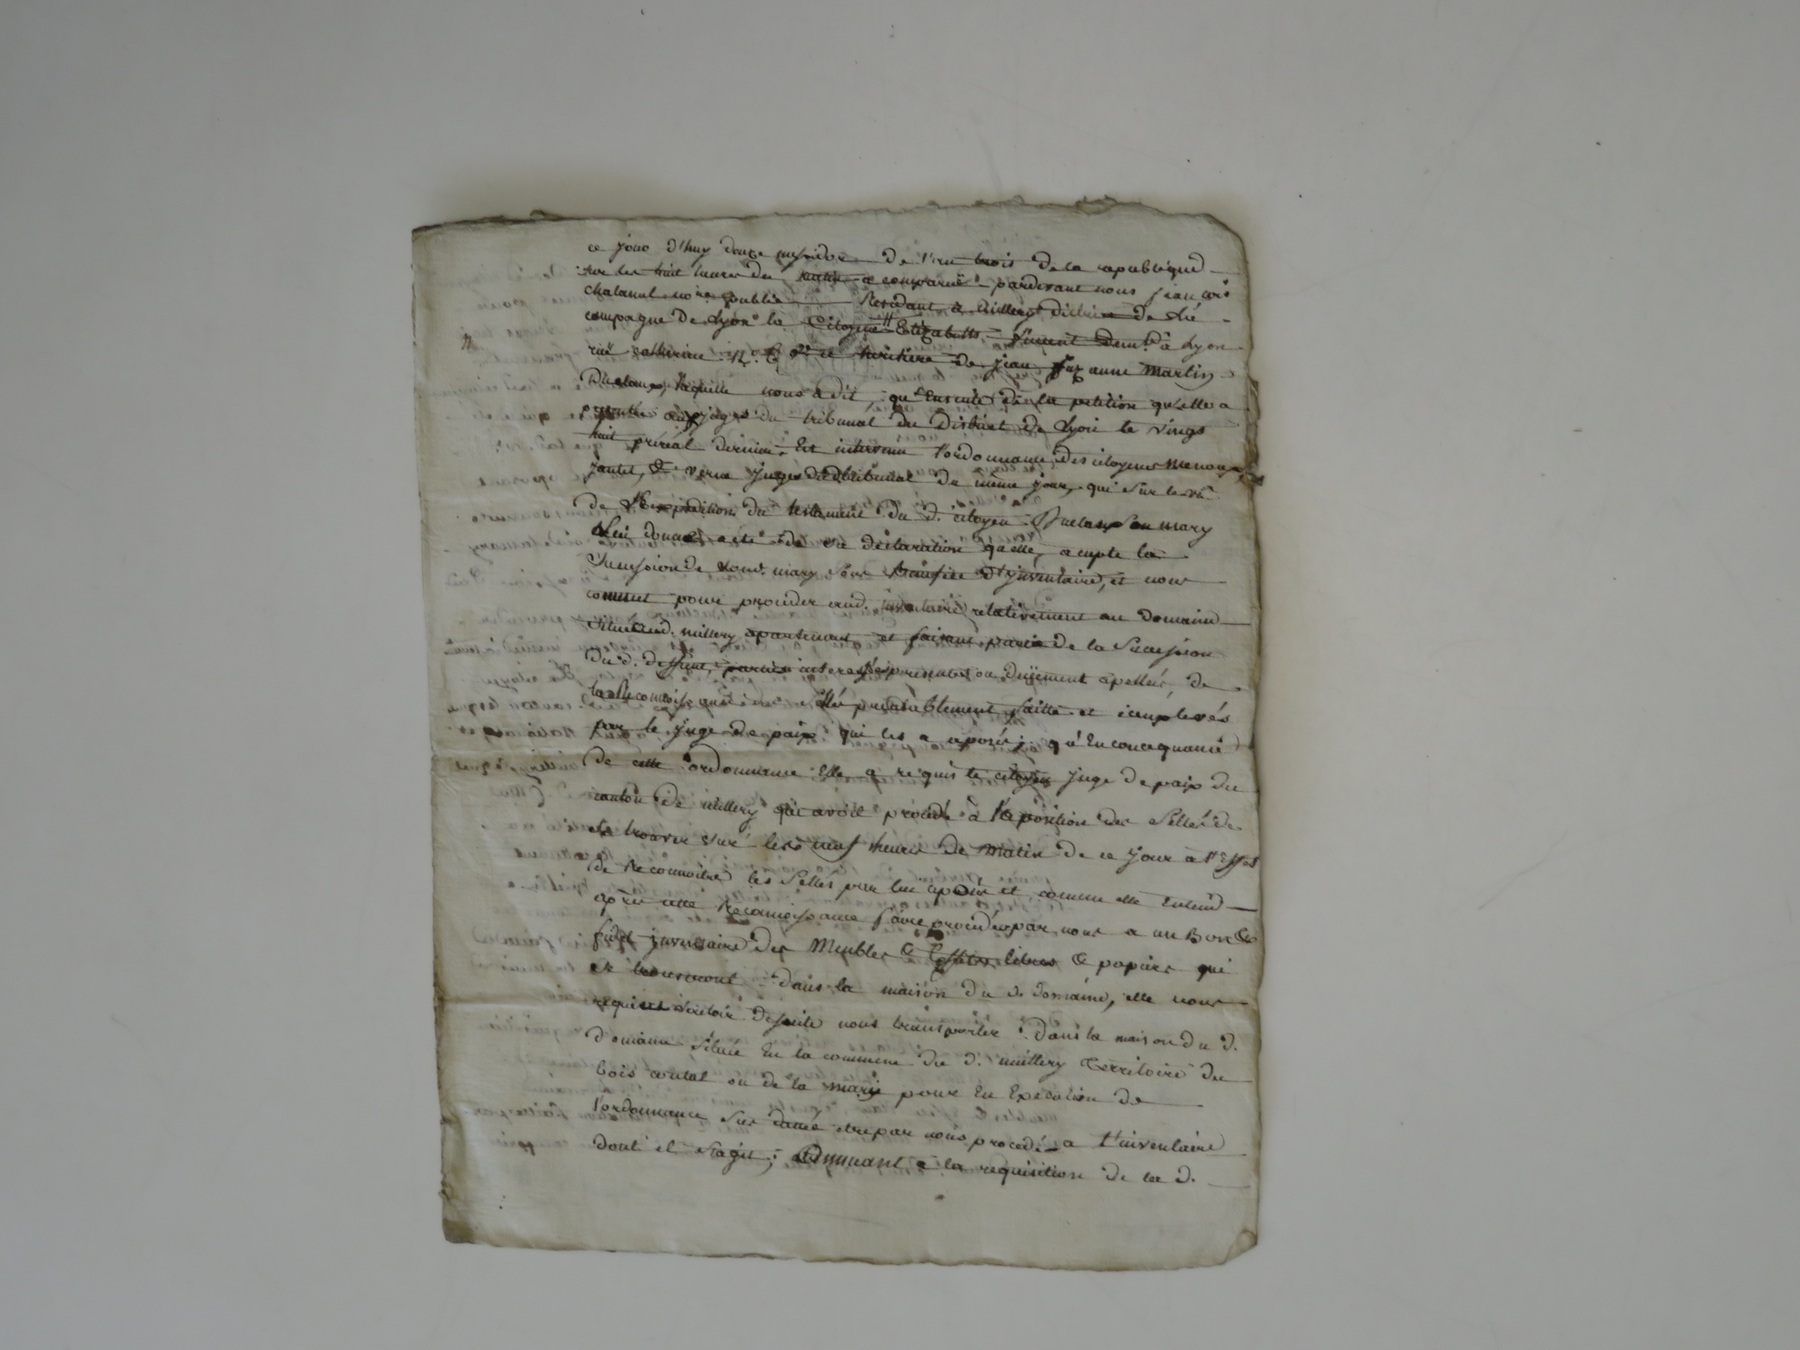 ce jour d'huy douze messidor de l'an trois de la republique
sur les huit heures du matin a comparüe pardevant nous jean
chatanel no.re public Residant a Millery district de la
campagne de Lyon la Citoyene Elizabeth Vincent demt. à Lyon
rüe catherine n.o et heritiere de jean anne Martin
laquelle nous a dit, qu'Ensuite de la petition qu'elle a
presentée aux juges du tribunal du District de Lyon le vingt
huit prereal dernier, Est intervenu l'ordonnance des citoyens
jantet, & verne juges du d. tribunal du même jour, qui sur le vû
de l'Expedition du testament du d. citoyen son mary
lui donne acte de sa declaration qu'elle acepte la
Sucession de sond. mary sous benefice d'jnventaire, et nous
commet pour proceder aud. inventaire relativement au domaine
situé aud. millery apartenant et faisant partie de la Sucession
du d. deffunt, parties interessées presentes ou duement apellées, de
la Reconnoissance des sellés préalablement faitte et ienplevés
par le juge de paix qui les a aposés; qu'En concequance
de cette ordonnance Elle a requis le citoyen juge de paix du
canton de millery qui avoit procédé à l'aposition des sellés de
se trouver sur les neuf heures de Matin de ce jour a l'Effet
de Reconnoitre les sellés par lui aposés et comme elle Entend
après cette Reconnoissance faire procéder par nous a un Bon &
fidel jnventaire des Meubles & Effets libres & papiers qui
se trouveront dans la maison du d. domaine, elle nous
requiert vouloir desuite nous transporter dans la maison du d.
domaine située En la commune du d. millery Territoire du
bois contal ou de la Marie pour En Execution de
l'ordonnance sus datée etre par nous procedé a l'inventaire
dont il s'agit; Adminant a la requisition de la d.